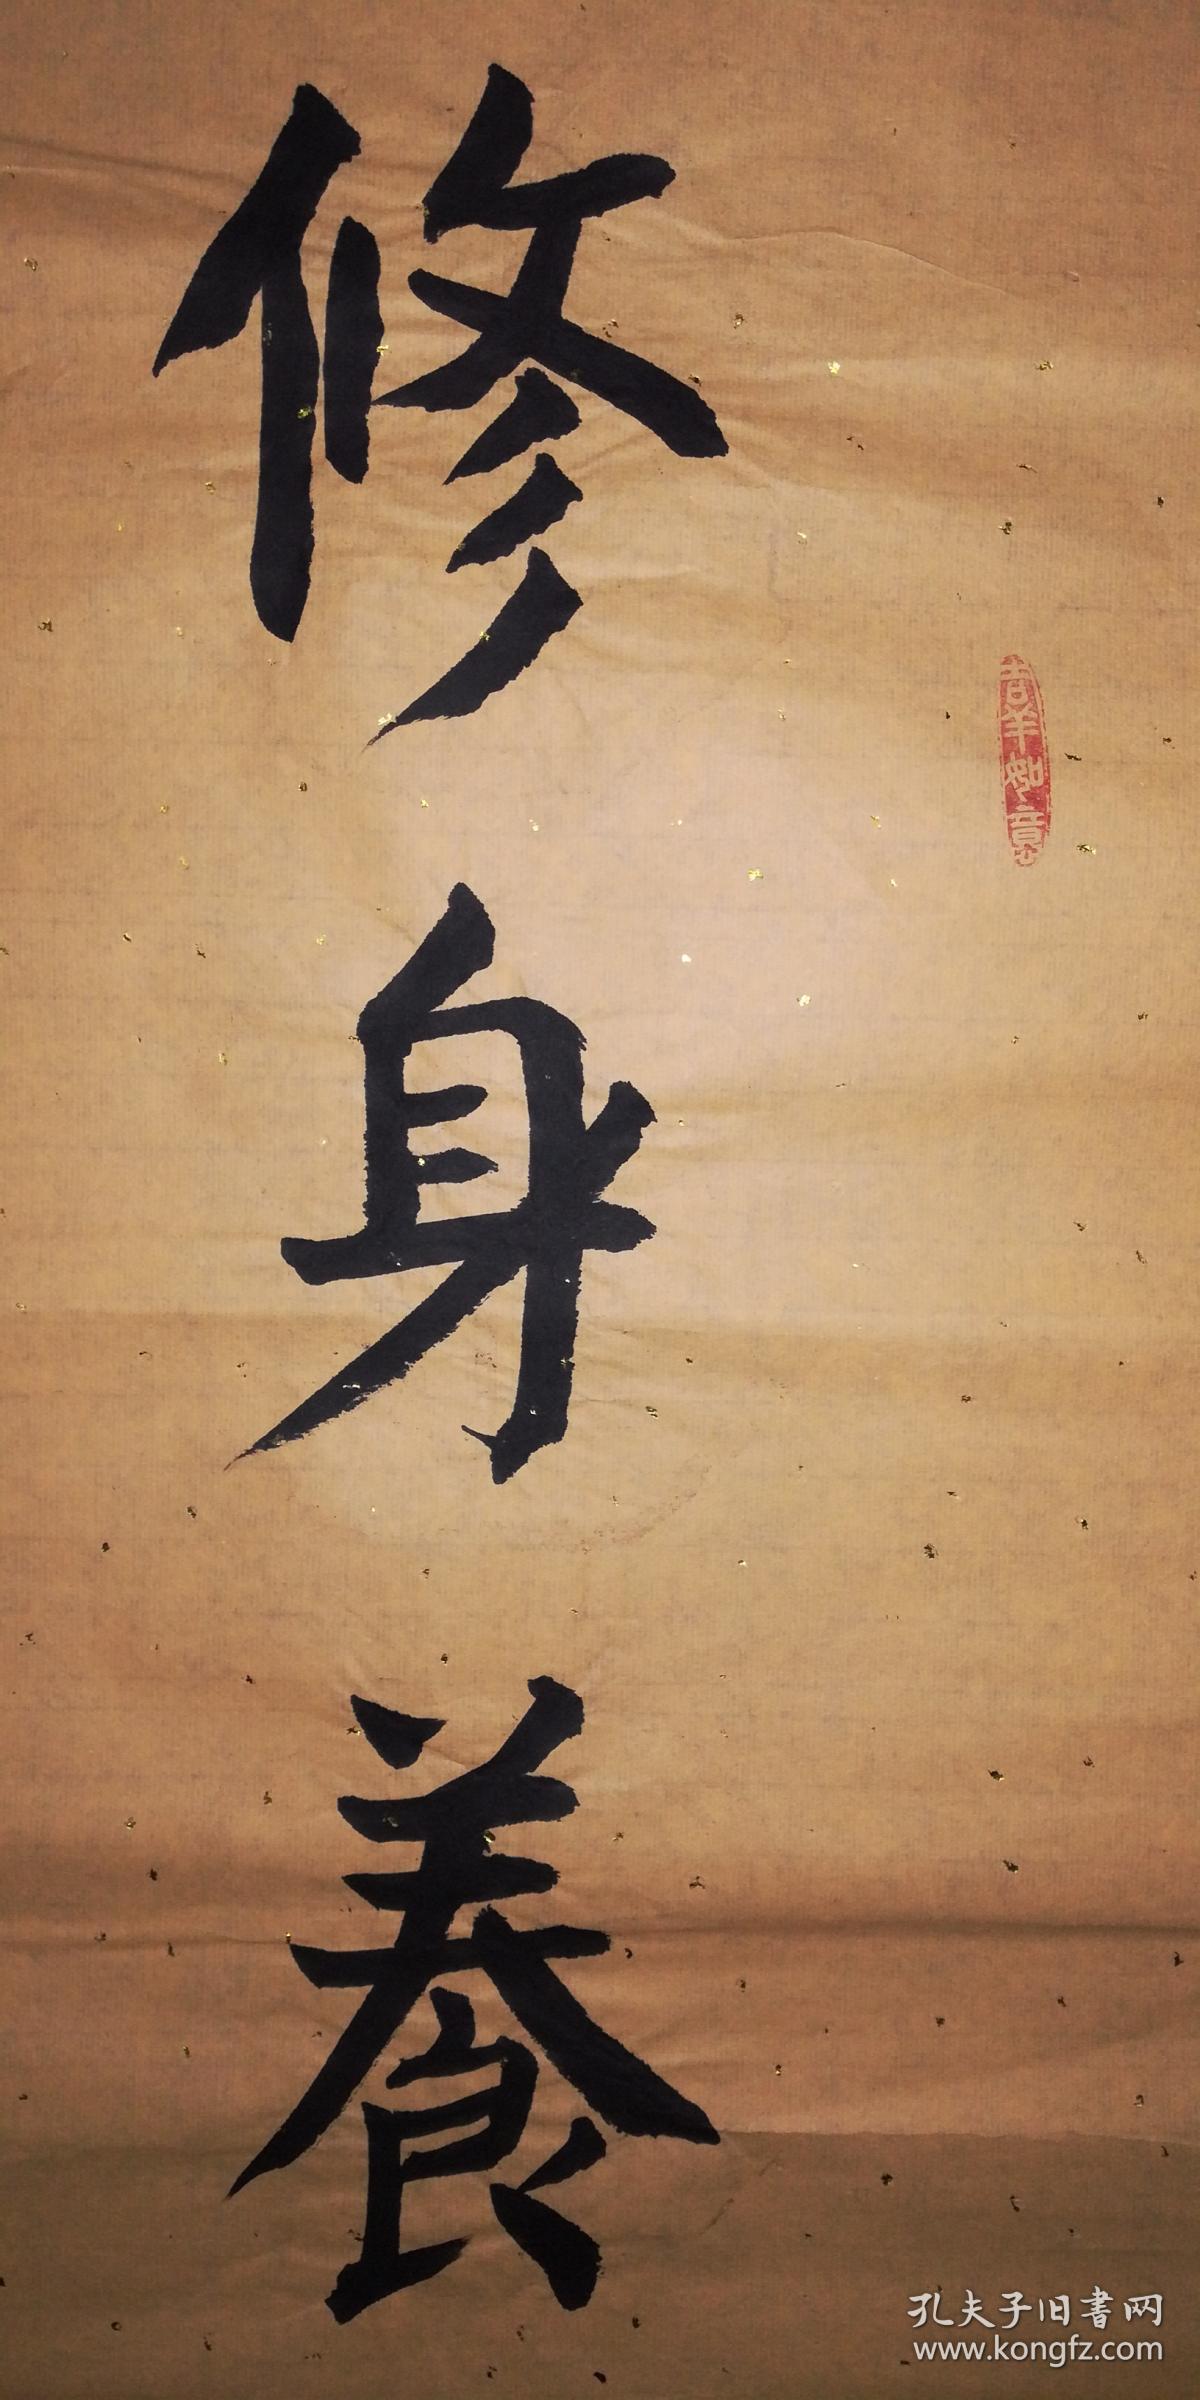 修身養
吉羊如意
孔夫子旧書网
www.kongfz.com